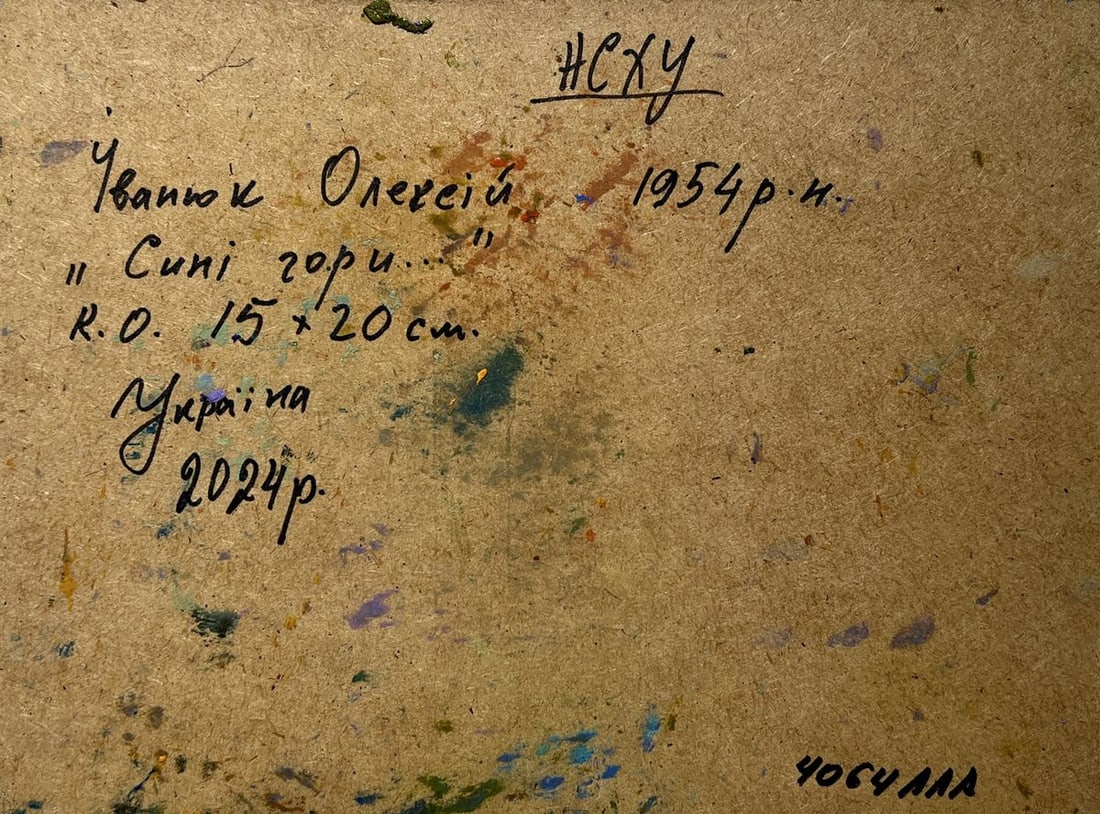 НСХУ
Іванюк Олексій 1954р.н.
„Сині гори..."
к.о. 15×20см.
Україна
2024р.
4064ЛЛА